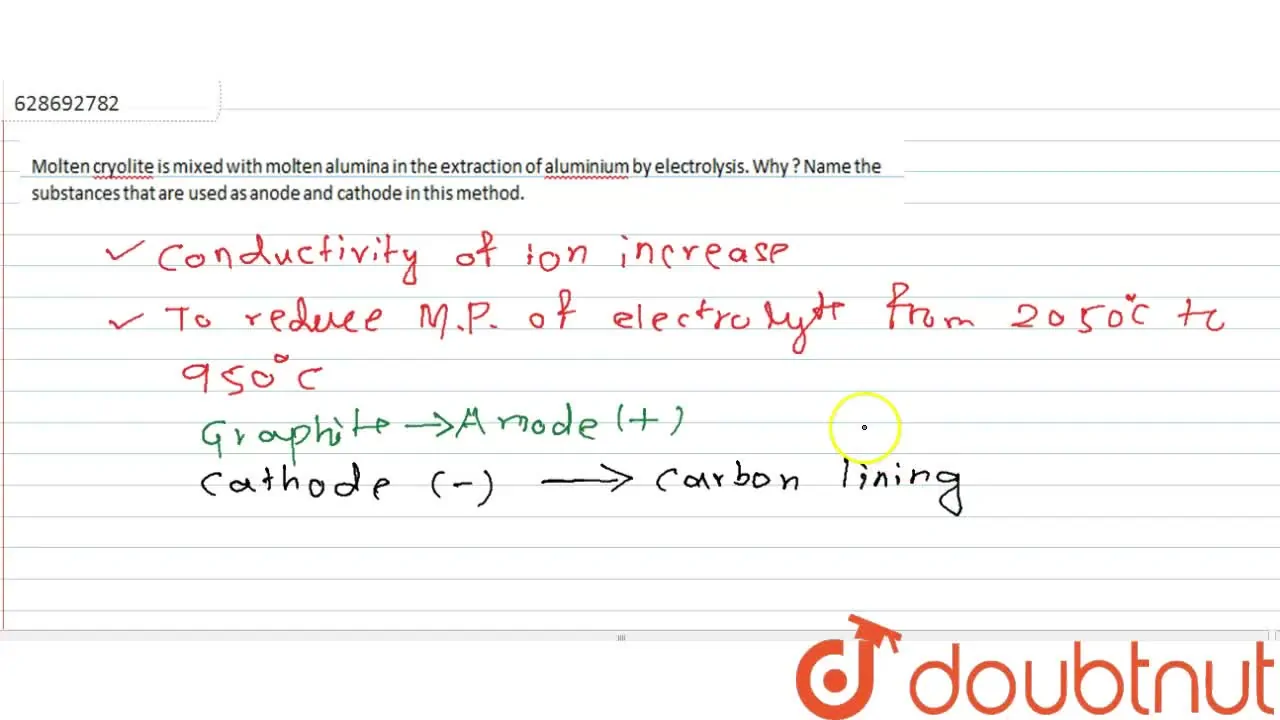 628692782
Molten cryolite is mixed with molten alumina in the extraction of aluminium by electrolysis. Why ? Name the
substances that are used as anode and cathode in this method.
✓ Conductivity of ion increase
✓ To reduce M.P. of electrolyte from 2050°C to
950°C
Graphite → Anode (+)
Cathode (-) → Carbon lining
doubtnut